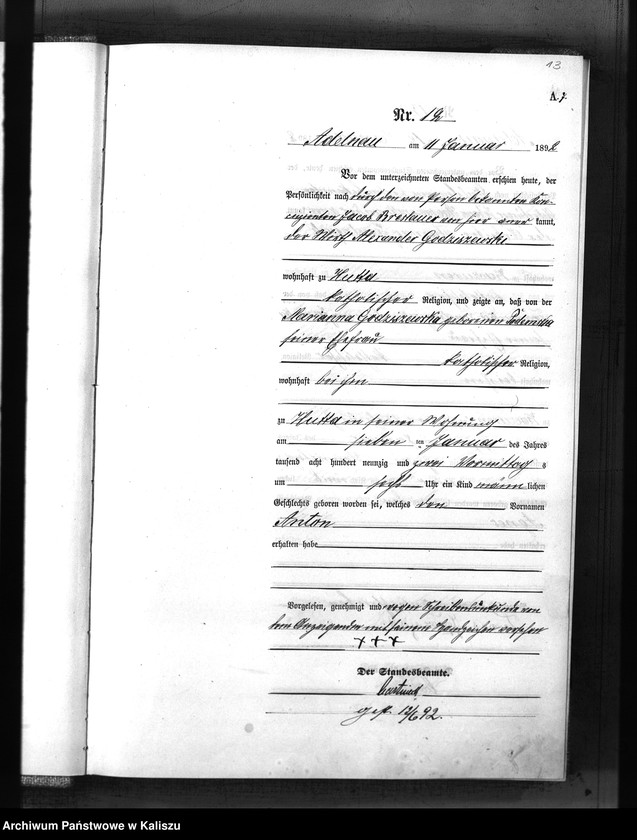 13
A. 1.
Nr. 12
Adelnau am 11 Januar 1892
Vor dem unterzeichneten Standesbeamten erschien heute, der
Persönlichkeit nach durch den von Person bekannten
Jacob von hier kannt,
der Wirth Alexander Godziszewski
wohnhaft zu Hutta
katholischer Religion, und zeigte an, daß von der
Marianna Godziszewska geborenen
seiner Ehefrau
katholischer Religion,
wohnhaft bei ihm
zu Hutta in seiner Wohnung
am sieben ten Januar des Jahres
tausend acht hundert neunzig und zwei Vormittag s
um sechs Uhr ein Kind männ lichen
Geschlechts geboren worden sei, welches den Vornamen
Anton
erhalten habe
Vorgelesen, genehmigt und wegen Schreibensunkunde von
dem Anzeigenden mit seinem Handzeichen versehen
+++
Der Standesbeamte.
gest. 12/6 92.
Archiwum Państwowe w Kaliszu